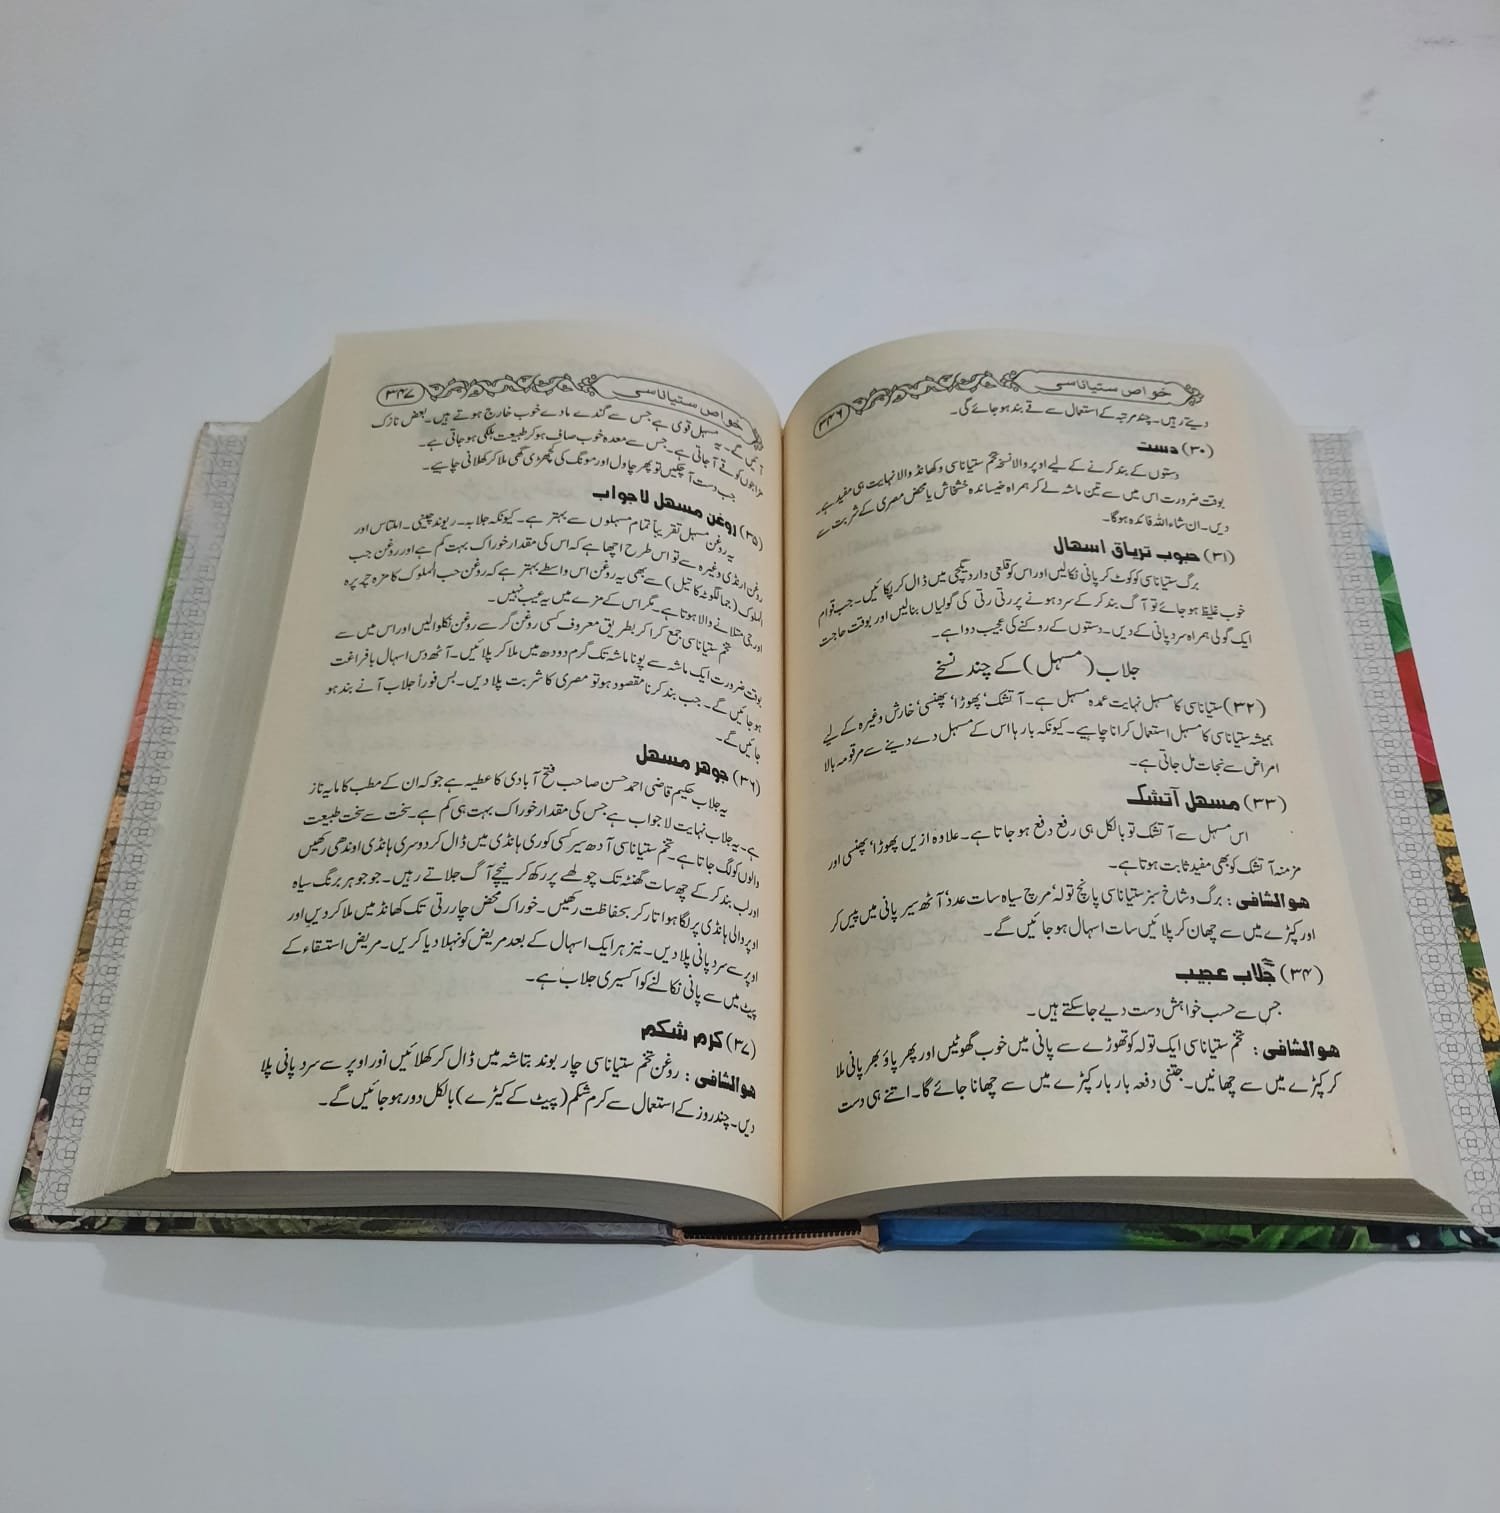 خواص ستیاناسی
۳۴۶
دیتے رہیں۔ چند مرتبہ کے استعمال سے قے بند ہو جائے گی۔
(۳۰) دست
دستوں کے بند کرنے کے لیے اوپر والا نسخہ تخم ستیاناسی و کھانڈ والا نہایت ہی مفید ہے۔
بوقت ضرورت اس میں سے تین ماشہ لے کر ہمراہ خیساندہ خشخاش یا محض مصری کے شربت سے
دیں۔ ان شاء اللہ فائدہ ہوگا۔
(۳۱) حبوب تریاق اسهال
برگ ستیاناسی کو کوٹ کر پانی نکالیں اور اس کو قلعی دار دیگچی میں ڈال کر پکائیں۔ جب قوام
خوب غلیظ ہو جائے تو آگ بند کر کے سرد ہونے پر رتی رتی کی گولیاں بنالیں اور بوقت حاجت
ایک گولی ہمراہ سرد پانی کے دیں۔ دستوں کے روکنے کی عجیب دوا ہے۔
جلاب (مسہل) کے چند نسخے
(۳۲) ستیاناسی کا مسہل نہایت عمدہ مسہل ہے۔ آتشک‘ پھوڑا‘ پھنسی‘ خارش وغیرہ کے لیے
ہمیشہ ستیاناسی کا مسہل استعمال کرانا چاہیے۔ کیونکہ بارہا اس کے مسہل دے دینے سے مرقومہ بالا
امراض سے نجات مل جاتی ہے۔
(۳۳) مسهل آتشک
اس مسہل سے آتشک تو بالکل ہی رفع دفع ہو جاتا ہے۔ علاوہ ازیں پھوڑا‘ پھنسی اور
مزمنہ آتشک کو بھی مفید ثابت ہوتا ہے۔
هو الشافی: برگ و شاخ سبز ستیاناسی پانچ تولہ‘ مرچ سیاہ سات عدد‘ آٹھ سیر پانی میں پیس کر
اور کپڑے میں سے چھان کر پلائیں سات اسہال ہو جائیں گے۔
(۳۴) جُلاب عجیب
جس سے حسب خواہش دست دیے جاسکتے ہیں۔
هو الشافی: تخم ستیاناسی ایک تولہ کو تھوڑے سے پانی میں خوب گھوٹیں اور پھر پاؤ بھر پانی ملا
کر کپڑے میں سے چھانیں۔ جتنی دفعہ بار بار کپڑے میں سے چھانا جائے گا۔ اتنے ہی دست
خواص ستیاناسی
۳۴۷
آئیں گے۔ یہ مسہل قوی ہے جس سے گندے مادے خوب خارج ہوتے ہیں۔ بعض نازک
مزاجوں کو قے آ جاتی ہے۔ جس سے معدہ خوب صاف ہو کر طبیعت ہلکی ہو جاتی ہے۔
جب دست آ چکیں تو پھر چاول اور مونگ کی کھچڑی گھی ملا کر کھلانی چاہیے۔
(۳۵) روغن مسهل لاجواب
یہ روغن مسہل تقریباً تمام مسہلوں سے بہتر ہے۔ کیونکہ جلابہ۔ ریوند چینی۔ املتاس اور
روغن ارنڈی وغیرہ سے تو اس طرح اچھا ہے کہ اس کی مقدار خوراک بہت کم ہے اور روغن حب
الملوک (جمالگوٹہ کا تیل) سے بھی یہ روغن اس واسطے بہتر ہے کہ روغن حب الملوک کا مزہ چرپرہ
اور جی متلانے والا ہوتا ہے۔ مگر اس کے مزے میں یہ عیب نہیں۔
تخم ستیاناسی جمع کرا کر بطریق معروف کسی روغن گر سے روغن نکلوالیں اور اس میں سے
بوقت ضرورت ایک ماشہ سے پونا ماشہ تک گرم دودھ میں ملا کر پلائیں۔ آٹھ دس اسہال بافراغت
ہو جائیں گے۔ جب بند کرنا مقصود ہو تو مصری کا شربت پلا دیں۔ بس فوراً جلاب آنے بند ہو
جائیں گے۔
(۳۶) جوهر مسهل
یہ جلاب حکیم قاضی احمد حسن صاحب فتح آبادی کا عطیہ ہے جو کہ ان کے مطب کا مایہ ناز
ہے۔ یہ جلاب نہایت لاجواب ہے جس کی مقدار خوراک بہت ہی کم ہے۔ سخت سے سخت طبیعت
والوں کو لگ جاتا ہے۔ تخم ستیاناسی آدھ سیر کسی کوری ہانڈی میں ڈال کر دوسری ہانڈی اوندھی رکھیں
اور لب بند کر کے چھ سات گھنٹہ تک چولھے پر رکھ کر نیچے آگ جلاتے رہیں۔ جو جوہر برنگ سیاہ
اوپر والی ہانڈی پر لگا ہوا تار کر بحفاظت رکھیں۔ خوراک محض چار رتی تک کھانڈ میں ملا کر دیں اور
اوپر سے سرد پانی پلا دیں۔ نیز ہر ایک اسہال کے بعد مریض کو نہلا دیا کریں۔ مریض استسقاء کے
پیٹ میں سے پانی نکالنے کو اکسیری جلاب ہے۔
(۳۷) کرم شکم
هو الشافی: روغن تخم ستیاناسی چار بوند بتاشہ میں ڈال کر کھلائیں اور اوپر سے سرد پانی پلا
دیں۔ چند روز کے استعمال سے کرم شکم (پیٹ کے کیڑے) بالکل دور ہو جائیں گے۔